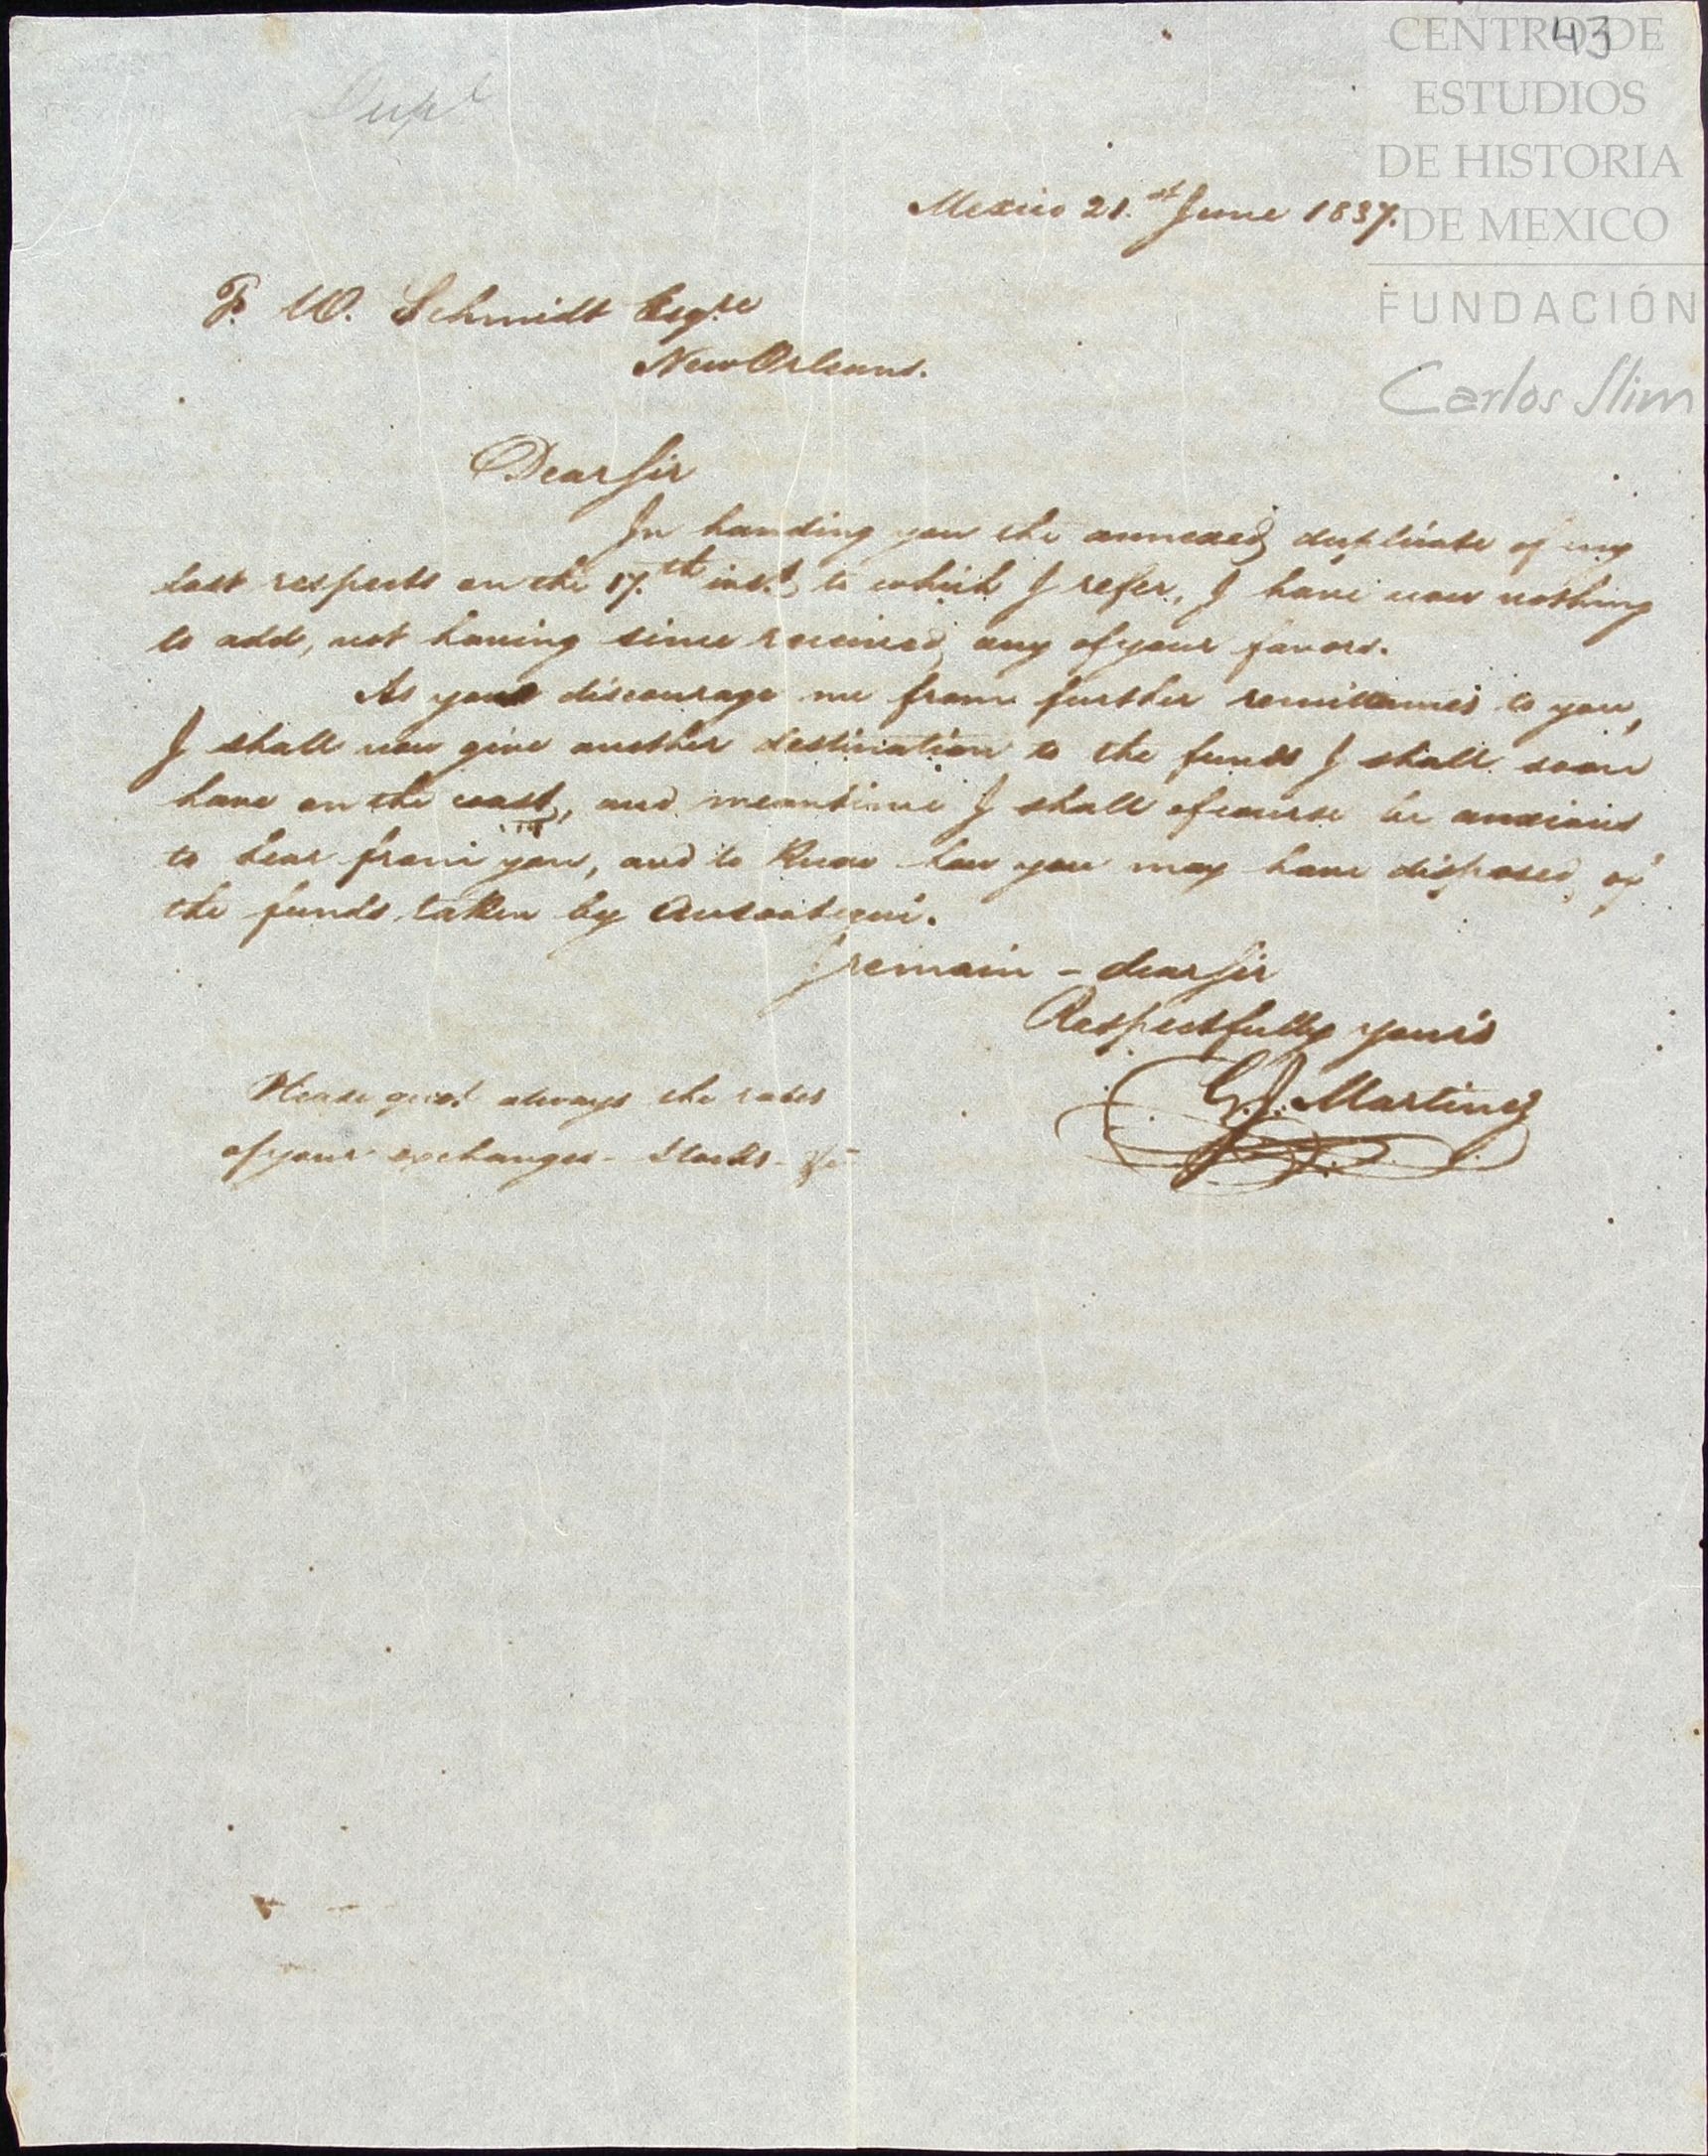 43
CENTRO DE
ESTUDIOS
DE HISTORIA
DE MEXICO
FUNDACIÓN
Carlos Slim
Dupl
Mexico 21.st June 1837.
F. W. Schmidt Esqre
New Orleans.
Dear Sir
In handing you the annexed duplicate of my
last respects on the 17.th inst. to which I refer, I have now nothing
to add, not having since received any of your favors.
As you discourage me from further remittances to you,
I shall now give another destination to the funds I shall soon
have on the coast, and meantime I shall of course be anxious
to hear from you, and to Know how you may have disposed of
the funds taken by
I remain - dear Sir
Respectfully your's
G. J. Martinez
Please always the rates
of your exchanges - Stocks - &c